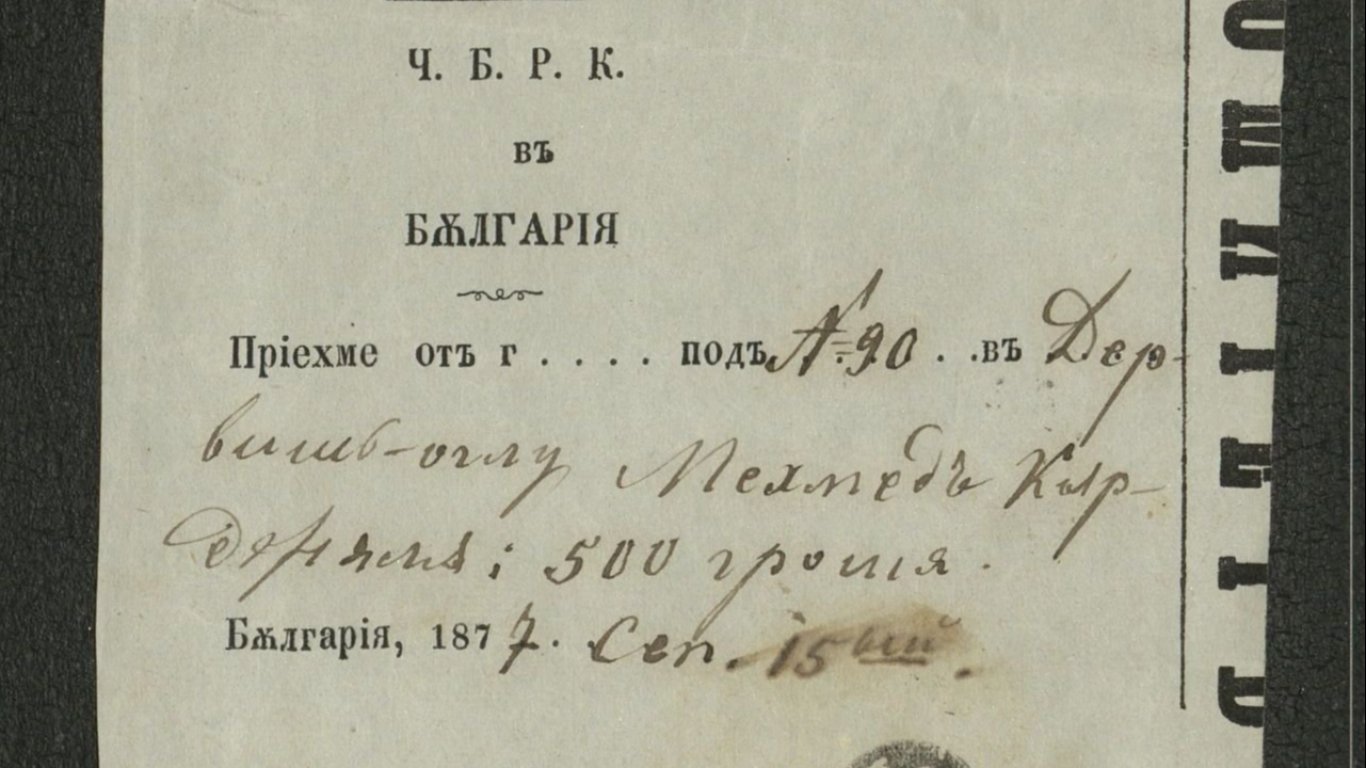 Ч. Б. Р. К.
въ
БѪЛГАРІЯ
Пріехме отъ г . . . . подъ №90 . . въ Дер-
вишъ-оглу Мехмедъ Кър-
: 500 гроша.
Бѫлгарія, 1877. Сеп. 15 ый.